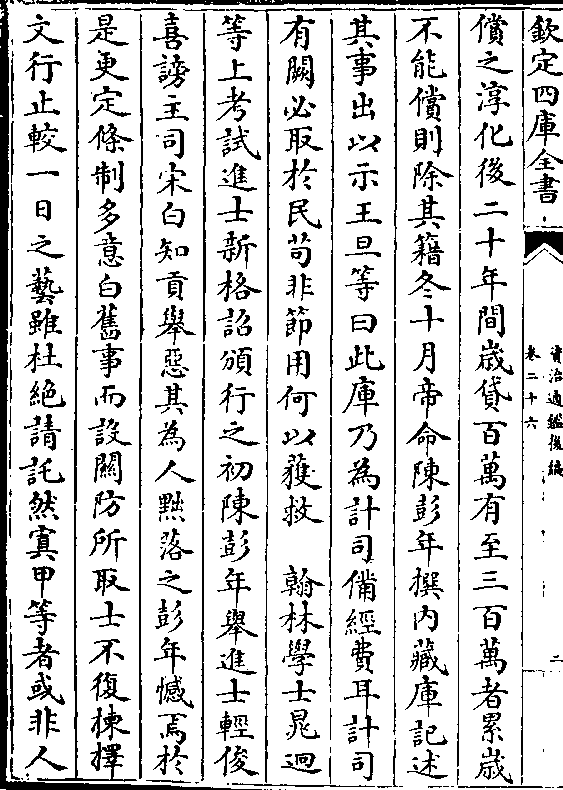 欽定四庫全書
資治通鑑後編
卷二十六
二
償之淳化後二十年間歲貸百萬有至三百萬者累歲
不能償則除其籍冬十月帝命陳彭年撰内藏庫記述
其事出以示王旦等曰此庫乃為計司備經費耳計司
有闕必取於民苟非節用何以獲救　翰林學士晁迥
等上考試進士新格詔頒行之初陳彭年舉進士輕俊
喜謗主司宋白知貢舉惡其為人黜落之彭年憾焉於
是更定條制多意白舊事而設關防所取士不復揀擇
文行止較一日之藝雖杜絶請託然寘甲等者或非人